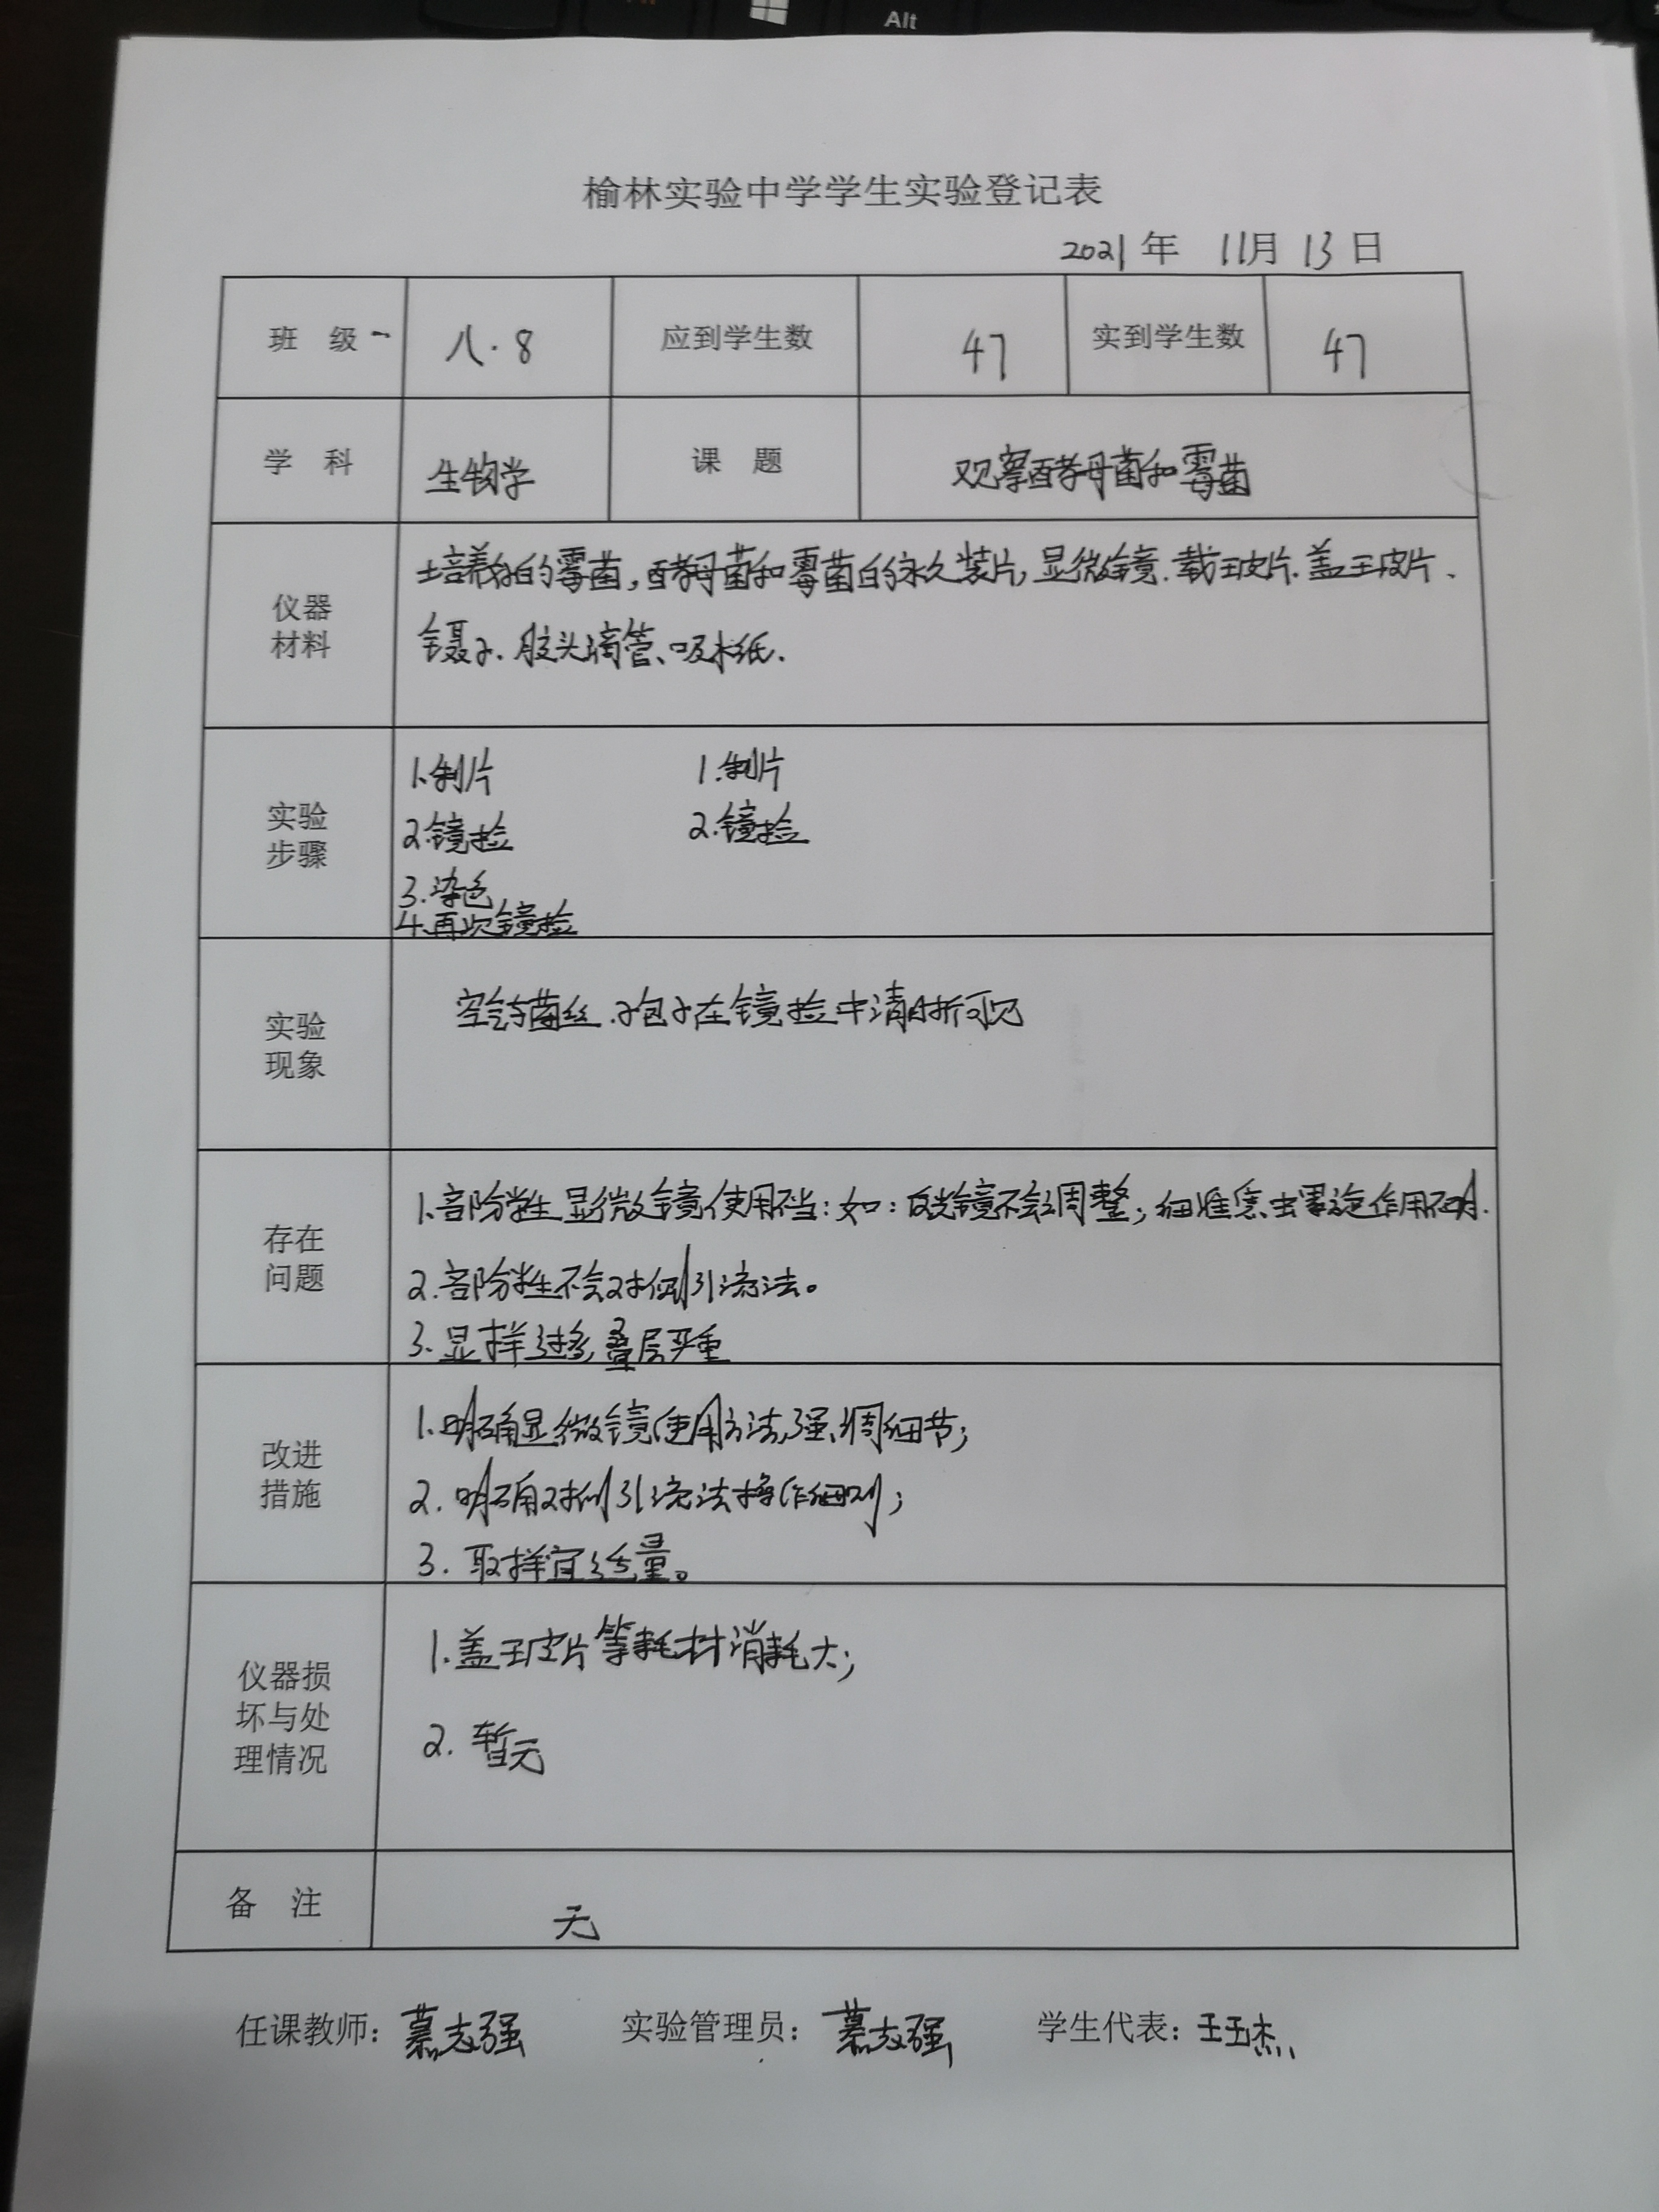 Alt
榆林实验中学学生实验登记表
2021 年 11月 13 日
班 级 八.8 应到学生数 47 实到学生数 47
学 科 生物学 课 题 观察酵母菌和霉菌
仪器材料
培养的霉菌,酵母菌和霉菌的永久装片,显微镜.载玻片.盖玻片、
镊子.胶头滴管、吸水纸.
实验步骤
1.制片 1.制片
2.镜检 2.镜检
3.染色
4.再次镜检
实验现象
菌丝.孢子在镜检中清晰可见
存在问题
1.部份学生显微镜使用不当:如:反光镜不会调整;细准焦螺旋作用不明.
2.部份学生不会对侧引流法。
3.显样过多,叠层严重
改进措施
1.明确显微镜使用方法,强调细节;
2.明确对侧引流法操作细则;
3.取样宜适量。
仪器损坏与处理情况
1.盖玻片等耗材消耗大;
2.暂无
备 注 无
任课教师: 慕志强 实验管理员: 慕志强 学生代表: 王玉杰